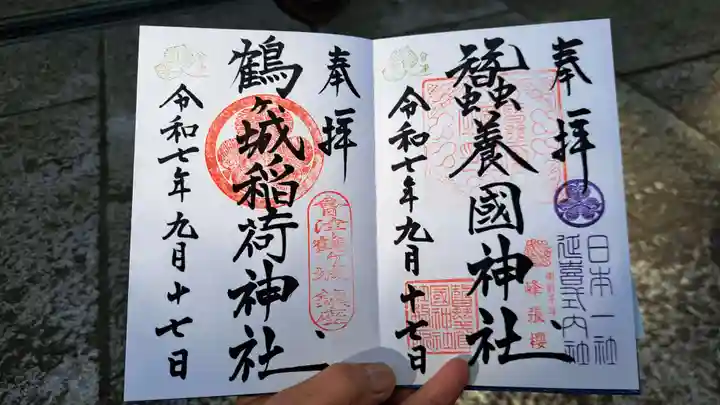 奉拝
日本一社
延喜式内社
峰張櫻
蠶養國神社
令和七年九月十七日
奉拝
會津鶴ヶ城鎮座
鶴ヶ城稲荷神社
令和七年九月十七日